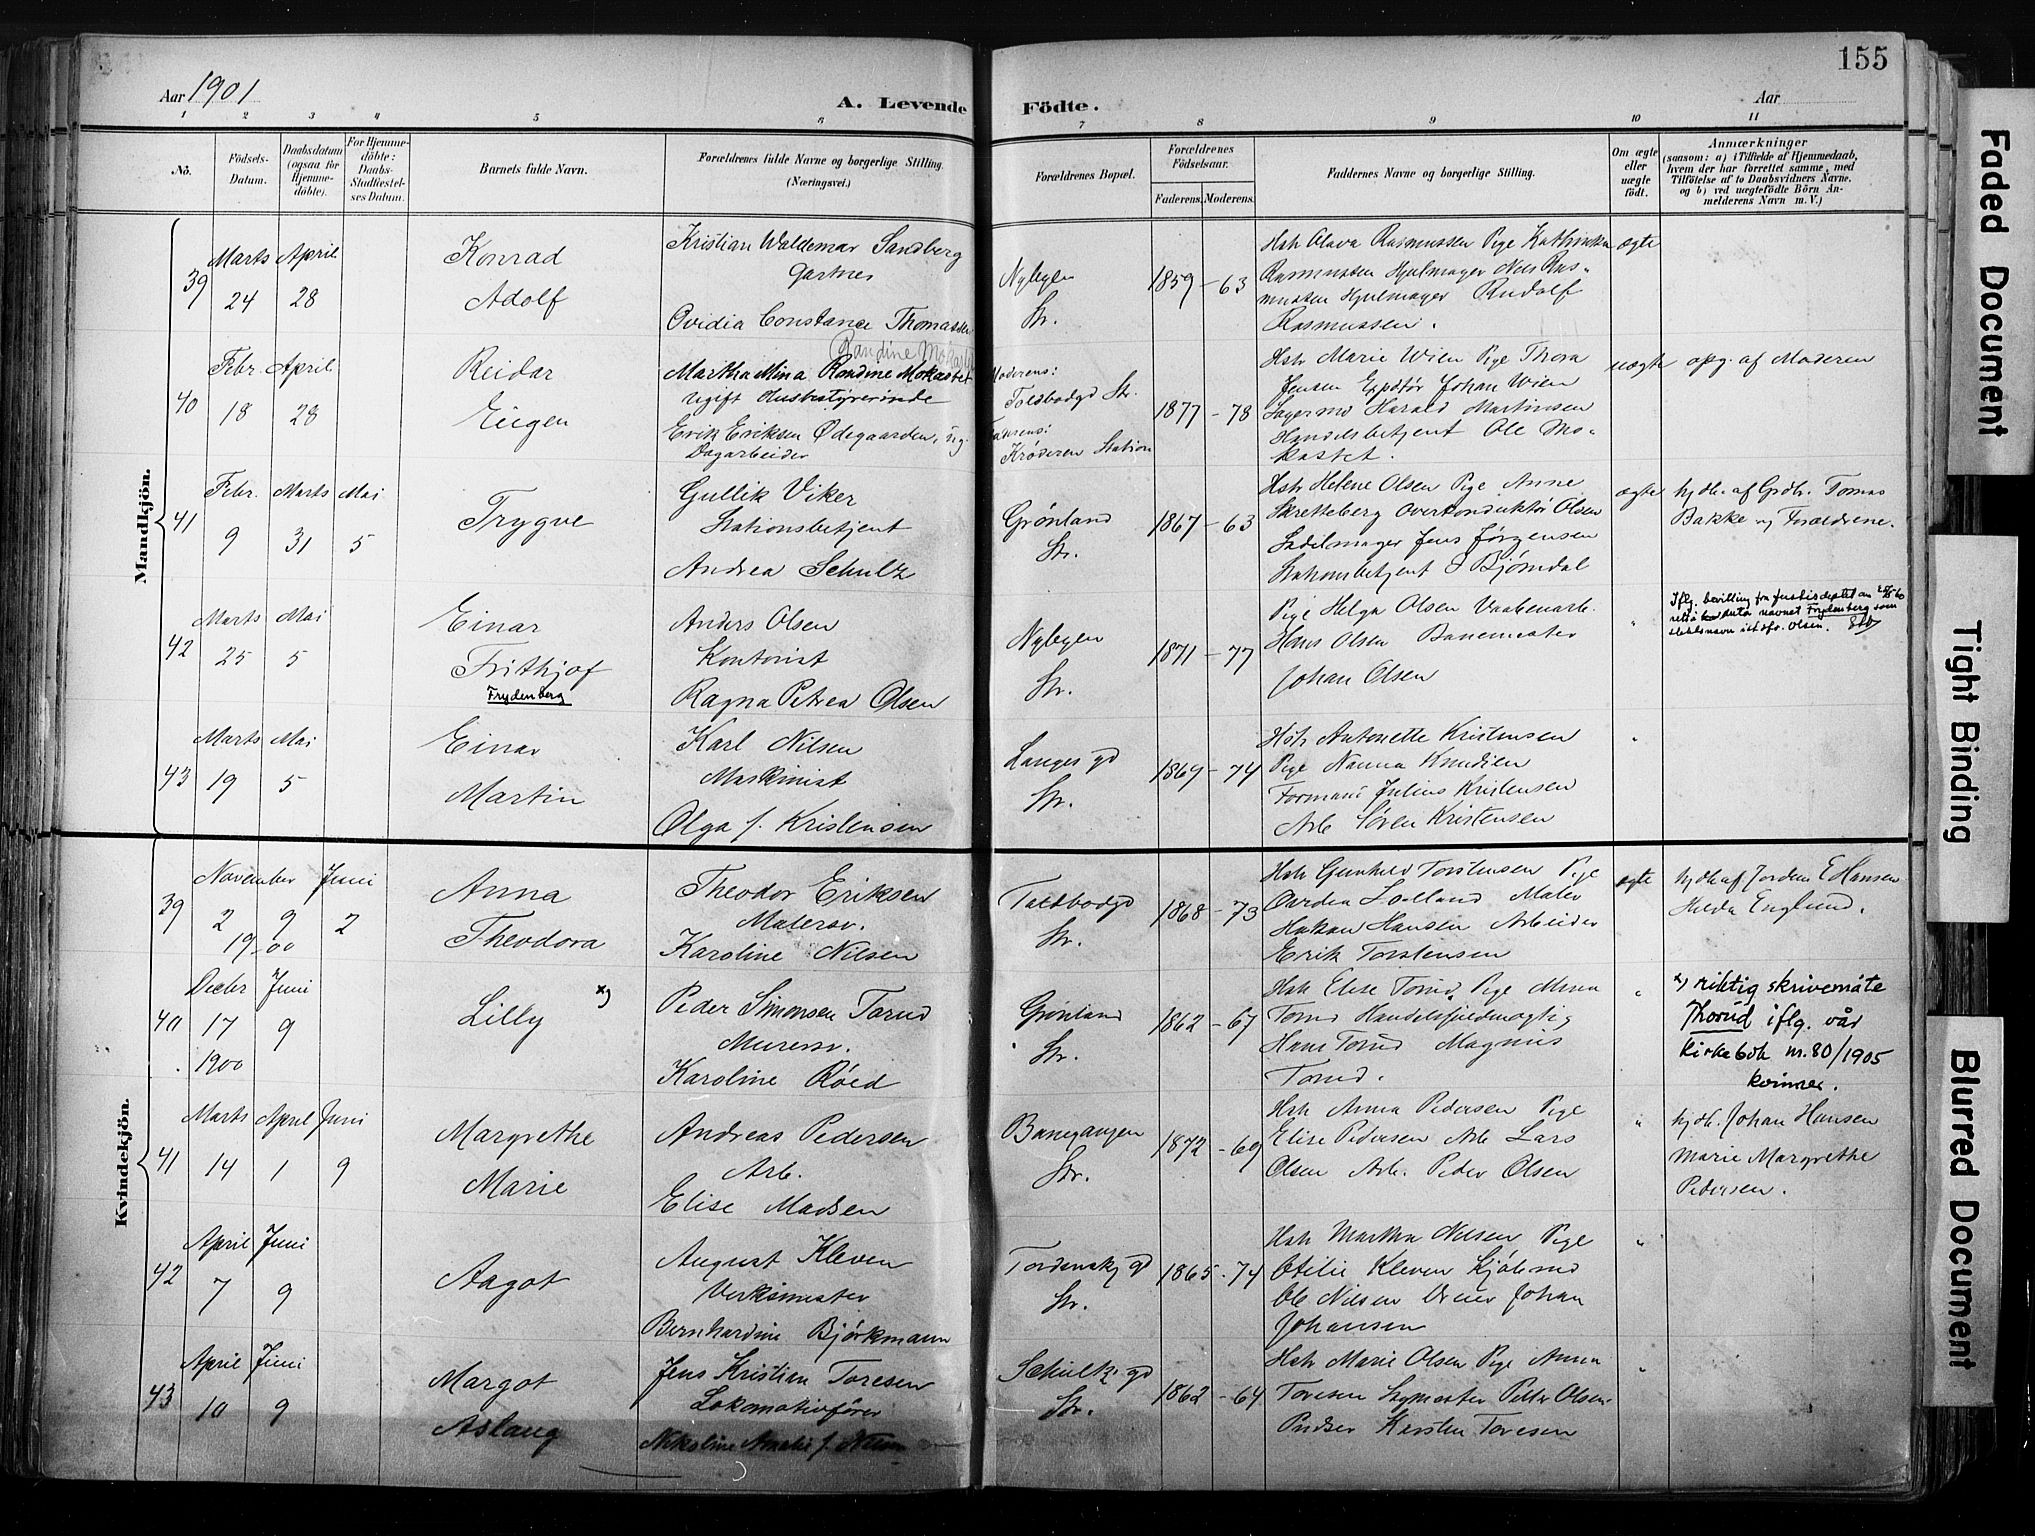 155
Aar 1901
A. Levende Födte.
Aar
1 2 3 4 5 6 7 8 9 10 11
No.
Födsels-Datum.
Daabsdatum (ogsaa for Hjemme-döbte).
For Hjemme-döbte: Daabs-Stadfæstel-ses Datum.
Barnets fulde Navn.
Forældrenes fulde Navne og borgerlige Stilling. (Næringsvei.)
Forældrenes Bopæl.
Forældrenes Födselsaar.
Faderens. Moderens.
Faddernes Navne og borgerlige Stilling.
Om ægte eller uægte födt.
Anmærkninger
(saasom: a) i Tilfælde af Hjemmedaab,
hvem der har forrettet samme, med
Tilföielse af to Daabsvidners Navne,
og b) ved uægtefödte Börn An-
melderens Navn m. V.)
Mandkjön.
39 Marts 24 April 28
Konrad
Adolf
Kristian Waldemar Sandberg
Gartner
Ovidia Constance Thomassen
Nybyen
Str.
1859 - 63
Hstr Olava Rasmussen Pige Kathinka
Rasmussen Hjulmager Nils Ras-
mussen Hjulmager Rudolf
Rasmussen.
ægte
40 Febr. 18 April 28
Reidar
Eugen
Randine
Martha Mina Randine Mokastet
ugift Husbestyrerinde
Erik Eriksen Ødegaarden, ug.
Dagarbeider
Moderens:
Toldbodgd Str.
Faderens:
Krøderen Station
1877 - 78
Hstr Marie Wien Pige Thora
Jensen Expdtør Johan Wien
Harald Martinsen
Handelsbetjent Ole Mo-
kastet.
uægte
opg. af Moderen
41 Febr. 9 Marts 31 Mai 5
Trygve
Gullik Viker
Stationsbetjent
Andrea Schulz
Grønland
Str.
1867 - 63
Hstr Helene Olsen Pige Anne
Skretteberg Overkonduktør Olsen
Sadelmager Jens Jørgensen
Stationsbetjent S Bjørndal
ægte
hjdb. af Gdbr. Tomas
Bakke og Forældrene.
42 Marts 25 Mai 5
Einar
Frithjof
Frydenberg
Anders Olsen
Kontorist
Ragna Petrea Olsen
Nybyen
Str.
1871 - 77
Pige Helga Olsen Vaabenarb.
Hans Olsen Banemester
Johan Olsen
"
Iflg. bevilling fra justisdeptet av
navnet Frydenberg som
slektsnavn istdfr. Olsen.
43 Marts 19 Mai 5
Einar
Martin
Karl Nilsen
Maskinist
Olga f. Kristensen
Langes gd
Str.
1869 - 74
Hstr Antonette Kristensen
Pige Nanna Knudsen
Formand Julius Kristensen
Arb Søren Kristensen
"
Kvindekjön.
39 November 2 1900 9 Juni 2
Anna
Theodora
Theodor Eriksen
Malersv.
Karoline Nilsen
Toldbodgd
Str.
1868 - 73
Hstr Gunhild Torstensen Pige
Maler
Hakan Hansen Arbeider
Erik Torstensen
ægte
hjdb af Jordm E Hansen
Hilda Englund.
40 Decbr 17 1900 Juni 9
Lilly x)
Peder Simonsen Torud
Murersv.
Karoline Røed
Grønland
Str.
1862 - 67
Hstr Elise Torud Pige Mina
Torud Handelsfuldmægtig
Hans Torud Magnus
Torud.
"
x) riktig skrivemåte
Thorud iflg. vår
kirkebok nr. 80/1905
kvinner.
41 Marts 14 April 1 Juni 9
Margrethe
Marie
Andreas Pedersen
Arb.
Elise Madsen
Banegangen
Str.
1872 - 69
Hstr Anna Pedersen Pige
Elise Pedersen Arb Lars
Olsen Arb. Peder Olsen
"
hjdb. Johan Hansen
Marie Margrethe
Pedersen.
42 April 7 Juni 9
Aagot
August Kleven
Verksmester
Bernhardine Bjørkmann
Tordenskj gd
Str.
1865 - 74
Hstr Martha Nilsen Pige
Otilie Kleven
Ole Nilsen Johan
Johansen
"
43 April 10 Juni 9
Margot
Aslaug
Jens Kristian Toresen
Lokomotivfører
Nikoline Amalie f. Nilsen
Schultz gd
Str.
1862 - 64
Hstr Marie Olsen Pige Anna
Toresen Petter Olsen
Pudser Karsten Toresen
"
Faded Document
Tight Binding
Blurred Document